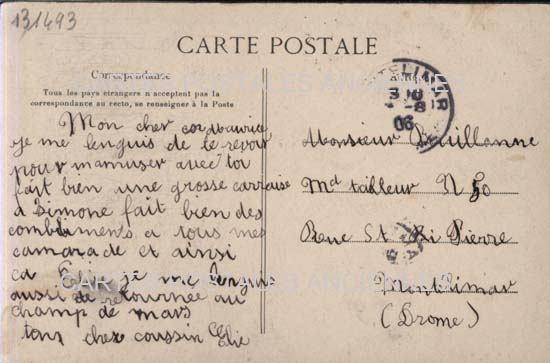 131493
CARTE POSTALE
Correspondance
Tous les pays étrangers n'acceptent pas la
correspondance au recto, se renseigner à la Poste
Mon cher Maurice
je me lenguis de te revoir
pour mamuser avec toi
fait bien une grosse carraise
a Simone fait bien des
combliments a tous mes
camarade et ainsi
ca Elie je me lengui
aussi de retournée au
champ de mars
ton cher coussin Elie
Monsieur Bouillanne
Md tailleur N 50
Rue St Pierre
Montélimar
(Drome)
MONTELIMAR
06